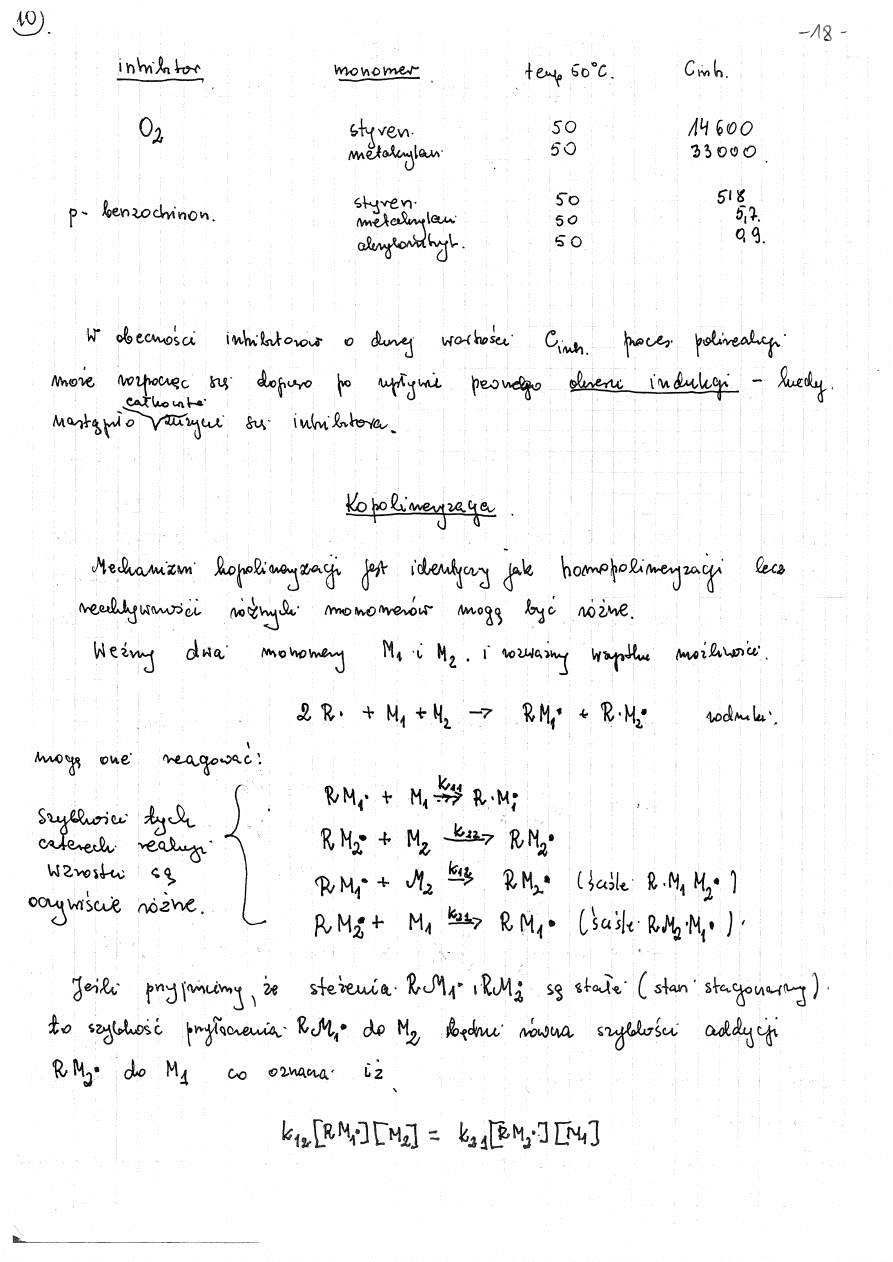 10.
-18-
inhibitor monomer temp 50°C. Cinh.
O2 styren. 50 14600
metakrylan. 50 33000.
p- benzochinon. styren. 50 518
metakrylan 50 5,7.
akrylonitryl. 50 0,9.
W obecności inhibitorów o dużej wartości Cinh. proces polireakcji
może rozpocząć się dopiero po upływie pewnego okresu indukcji – kiedy.
całkowite
nastąpiło √ zużycie się inhibitora.
Kopolimeryzacja.
Mechanizm kopolimeryzacji jest identyczny jak homopolimeryzacji lecz
reaktywności różnych monomerów mogą być różne.
Weźmy dwa monomery M1 i M2. i rozważmy wszystkie możliwości.
2 R• + M1 + M2 → RM1• + R·M2• rodniki.
mogą one reagować:
RM1• + M1 k11→ R·M1•
Szybkości tych
RM2• + M2 k22→ RM2•
czterech reakcji
wzrostu są
RM1• + M2 k12→ RM2• (ściśle R·M1M2•)
oczywiście różne.
RM2• + M1 k21→ RM1• (ściśle RM2·M1•).
Jeśli przyjmiemy, że stężenia RM1• i RM2• są stałe (stan stacjonarny).
to szybkość przyłączenia RM1• do M2 będzie równa szybkości addycji
RM2• do M1 co oznacza iż
k12[RM1•][M2] = k21[RM2•][M1]